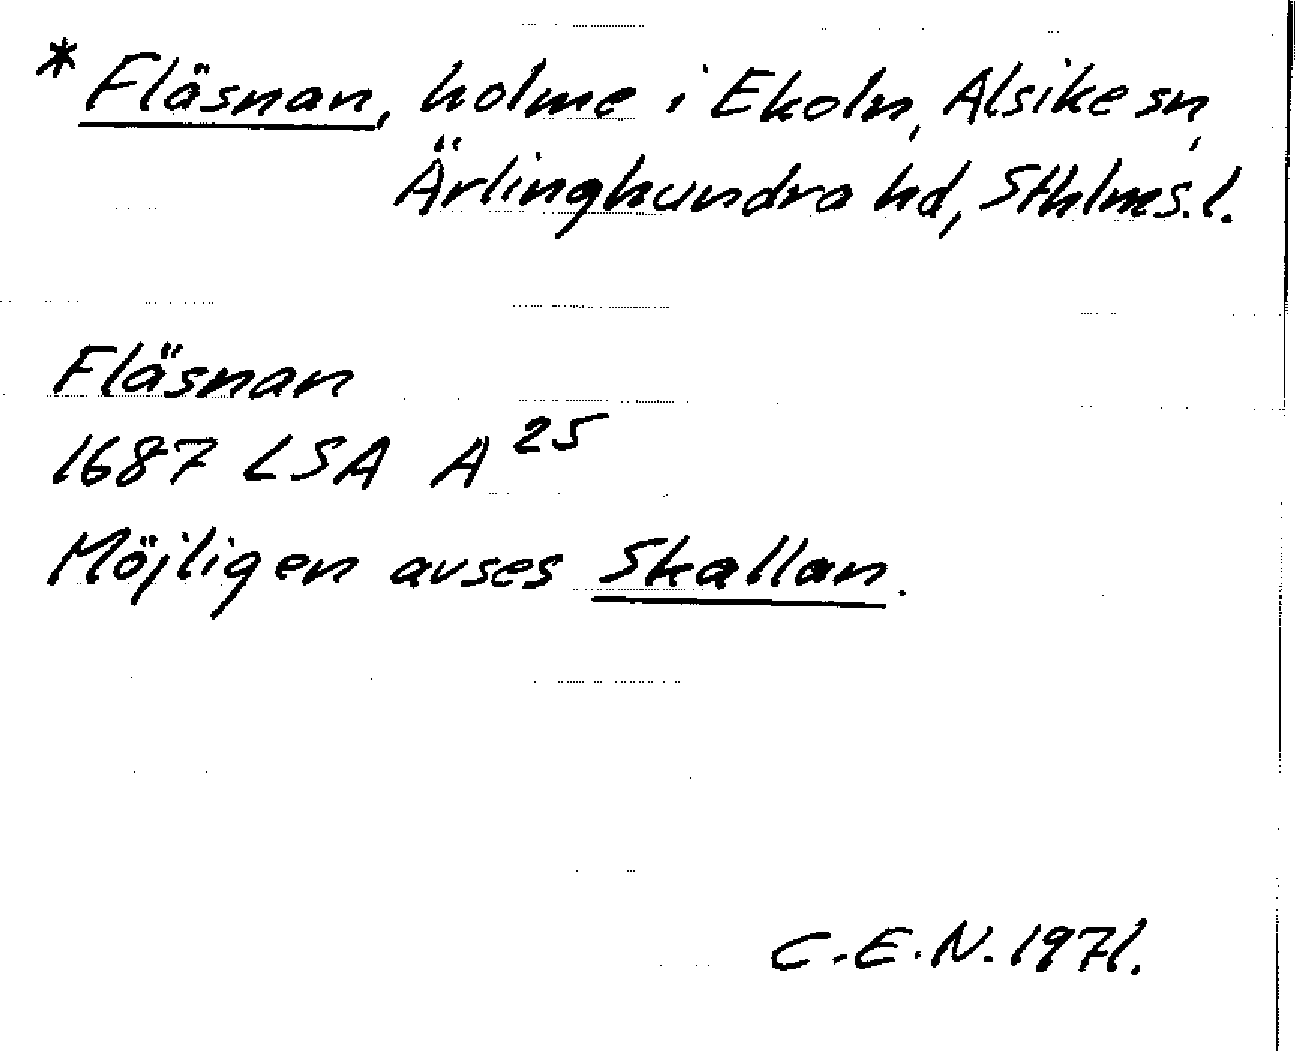 * Fläsnan, holme i Ekoln, Alsike sn,
Ärlinghundra hd, Sthlms. l.
Fläsnan
1687 LSA A 25
Möjligen avses Skallan.
C.E.N. 1971.